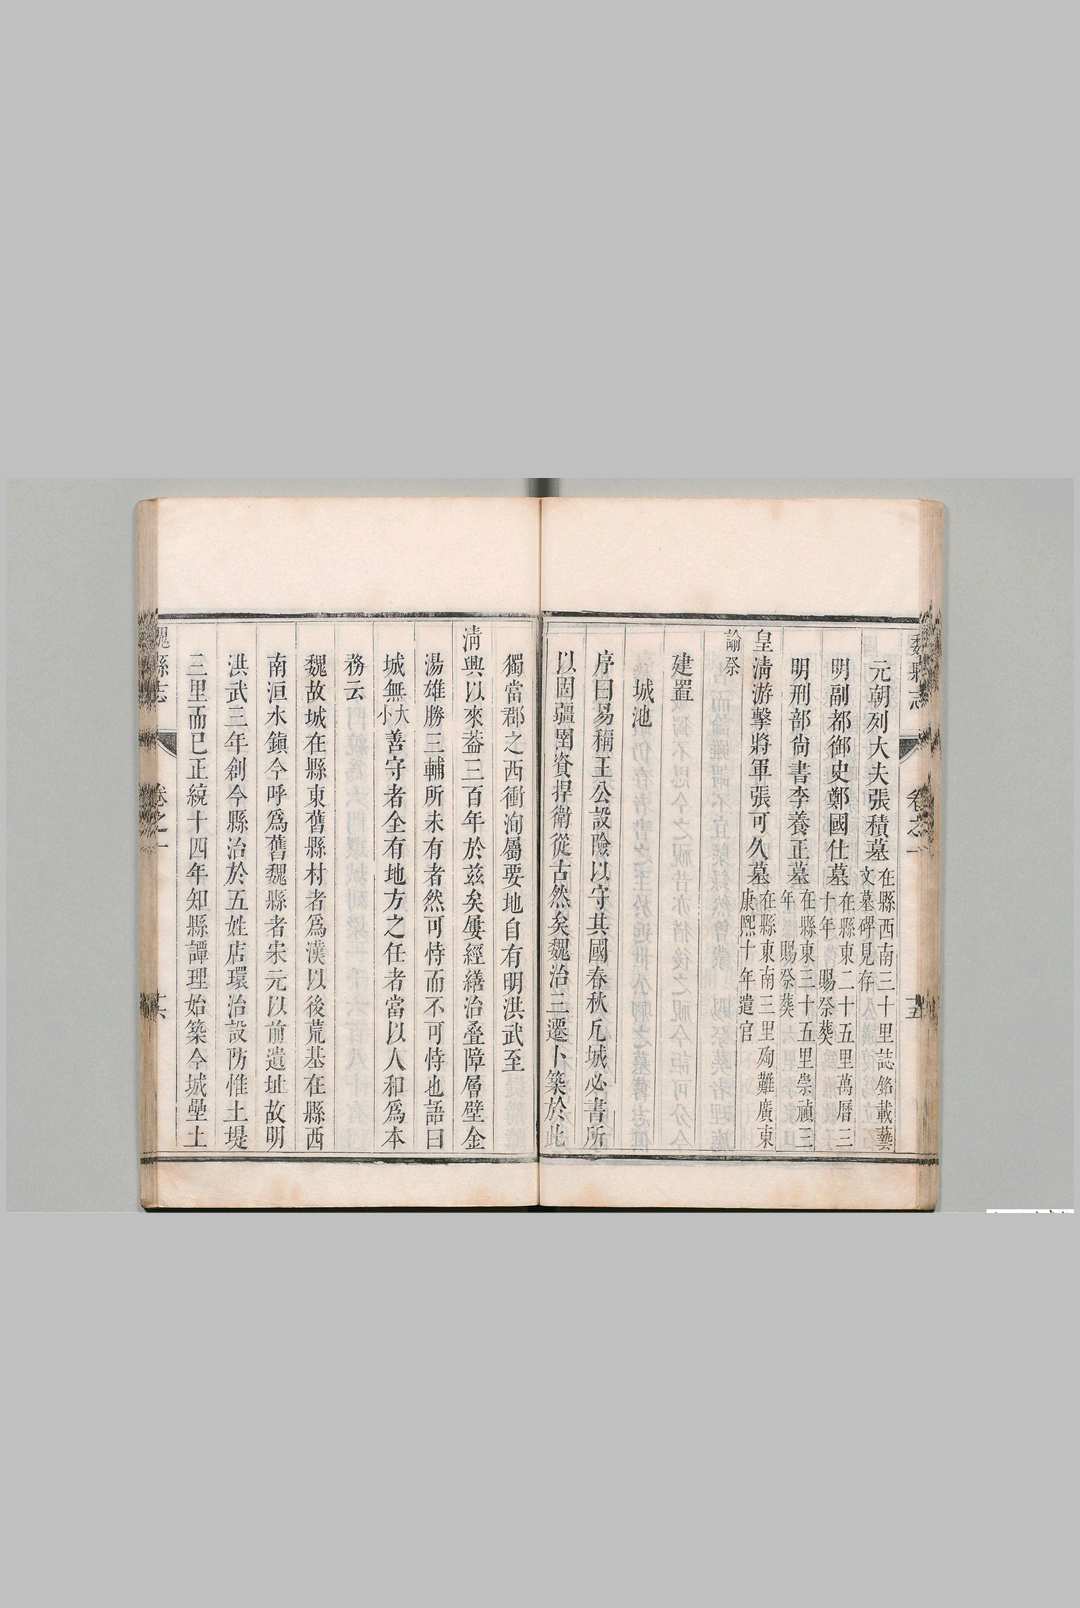 魏縣志 卷之一 十五
元朝列大夫張積墓在縣西南三十里誌銘載藝文墓碑見存
明副都御史鄭國仕墓在縣東二十五里萬曆三十年賜祭葬
明刑部尚書李養正墓在縣東三十五里崇禎三年賜祭葬
皇淸游擊將軍張可久墓在縣東南三里殉難廣東康熙十年遣官
諭祭
建置
城池
序曰易稱王公設險以守其國春秋凡城必書所
以固疆圉資捍衛從古然矣魏治三遷卜築於此
獨當郡之西衝洵屬要地自有明洪武至
淸興以來葢三百年於兹矣屢經繕治叠障層壁金
湯雄勝三輔所未有者然可恃而不可恃也語曰
城無大小善守者全有地方之任者當以人和爲本
務云
魏故城在縣東舊縣村者爲漢以後荒基在縣西
南洹水鎭今呼爲舊魏縣者宋元以前遺址故明
洪武三年創今縣治於五姓店環治設防惟土堤
三里而已正統十四年知縣譚理始築今城壘土
魏縣志 卷之一 十六